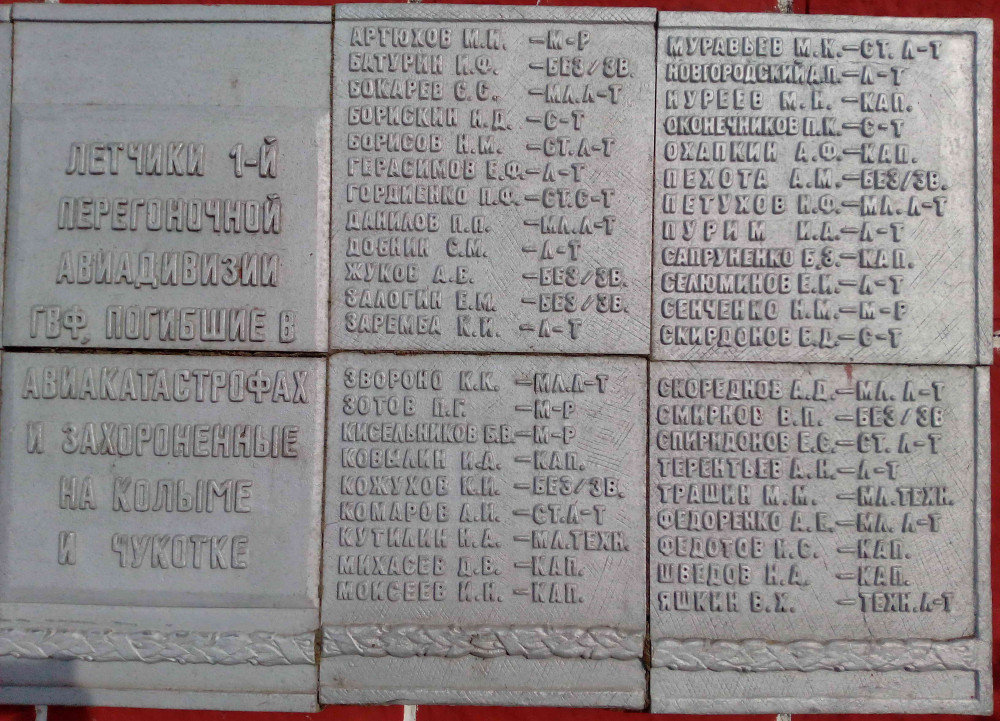 ЛЕТЧИКИ 1-Й
ПЕРЕГОНОЧНОЙ
АВИАДИВИЗИИ
ГВФ, ПОГИБШИЕ В
АВИАКАТАСТРОФАХ
И ЗАХОРОНЕННЫЕ
НА КОЛЫМЕ
И ЧУКОТКЕ
АРТЮХОВ М.И. –М-Р
БАТУРИН И.Ф. –БЕЗ/ЗВ.
БОКАРЕВ С.С. –МЛ.Л-Т
БОРИСКИН Н.Д. –С-Т
БОРИСОВ Н.М. –СТ.Л-Т
ГЕРАСИМОВ Е.Ф.–Л-Т
ГОРДИЕНКО П.Ф.–СТ.С-Т
ДАНИЛОВ П.П. –МЛ.Л-Т
ДОБКИН С.М. –Л-Т
ЖУКОВ А.Е. –БЕЗ/ЗВ.
ЗАЛОГИН Е.М. –БЕЗ/ЗВ.
ЗАРЕМБА К.И. –Л-Т
ЗВОРОНО К.К. –МЛ.Л-Т
ЗОТОВ П.Г. –М-Р
КИСЕЛЬНИКОВ Б.В.–М-Р
КОВЫЛИН И.А. –КАП.
КОЖУХОВ К.И. –БЕЗ/ЗВ.
КОМАРОВ А.И. –СТ.Л-Т
КУТИЛИН Н.А. –МЛ.ТЕХН.
МИХАСЕВ Д.В. –КАП.
МОКСЕЕВ И.Н. –КАП.
МУРАВЬЕВ М.К.–СТ. Л-Т
НОВГОРОДСКИЙ Д.П.–Л-Т
НУРЕЕВ М.Н. –КАП.
ОКОНЕЧНИКОВ П.К.–С-Т
ОХАПКИН А.Ф.–КАП.
ПЕХОТА А.М.–БЕЗ/ЗВ.
ПЕТУХОВ Н.Ф.–МЛ. Л-Т
ПУРИМ И.А.–Л-Т
САПРУНЕНКО Б.З.–КАП.
СЕЛЮМИНОВ Е.И.–Л-Т
СЕНЧЕНКО Н.М.–М-Р
СКИРДОНОВ В.Д.–С-Т
СКОРЕДНОВ А.Д.–МЛ. Л-Т
СМИРНОВ В.П. –БЕЗ/ЗВ
СПИРИДОНОВ Е.С.–СТ. Л-Т
ТЕРЕНТЬЕВ А.Н.–Л-Т
ТРАШИН М.М. –МЛ.ТЕХН.
ФЕДОРЕНКО А.Е.–МЛ. Л-Т
ФЕДОТОВ И.С. –КАП.
ШВЕДОВ Н.А. –КАП.
ЯШКИН В.Х. –ТЕХН.Л-Т